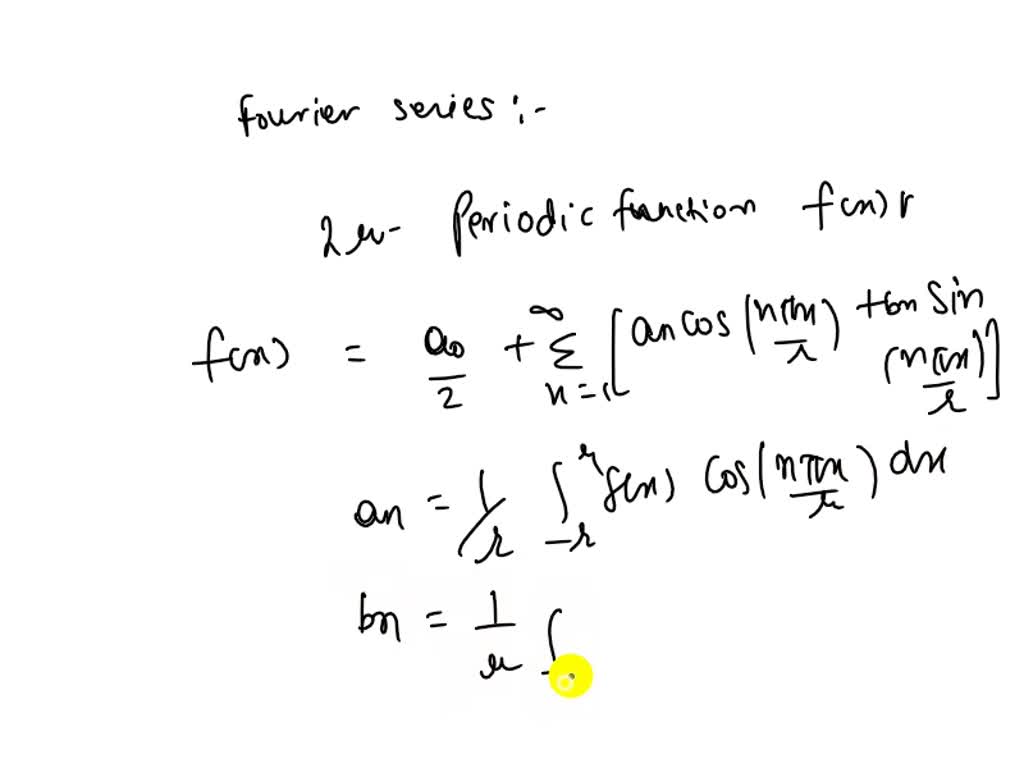 fourier series :-
2r- Periodic function f(x)
f(x) = a0/2 + ∞Σn=1 [an cos(nπx/r) + bn sin (nπx/r)]
an = 1/r ∫-r^r f(x) cos(nπx/r) dx
bn = 1/r ∫-